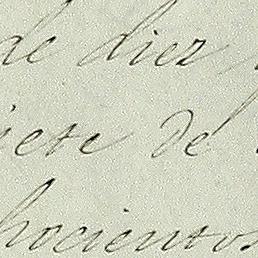 de diez y
iete de
hocientos